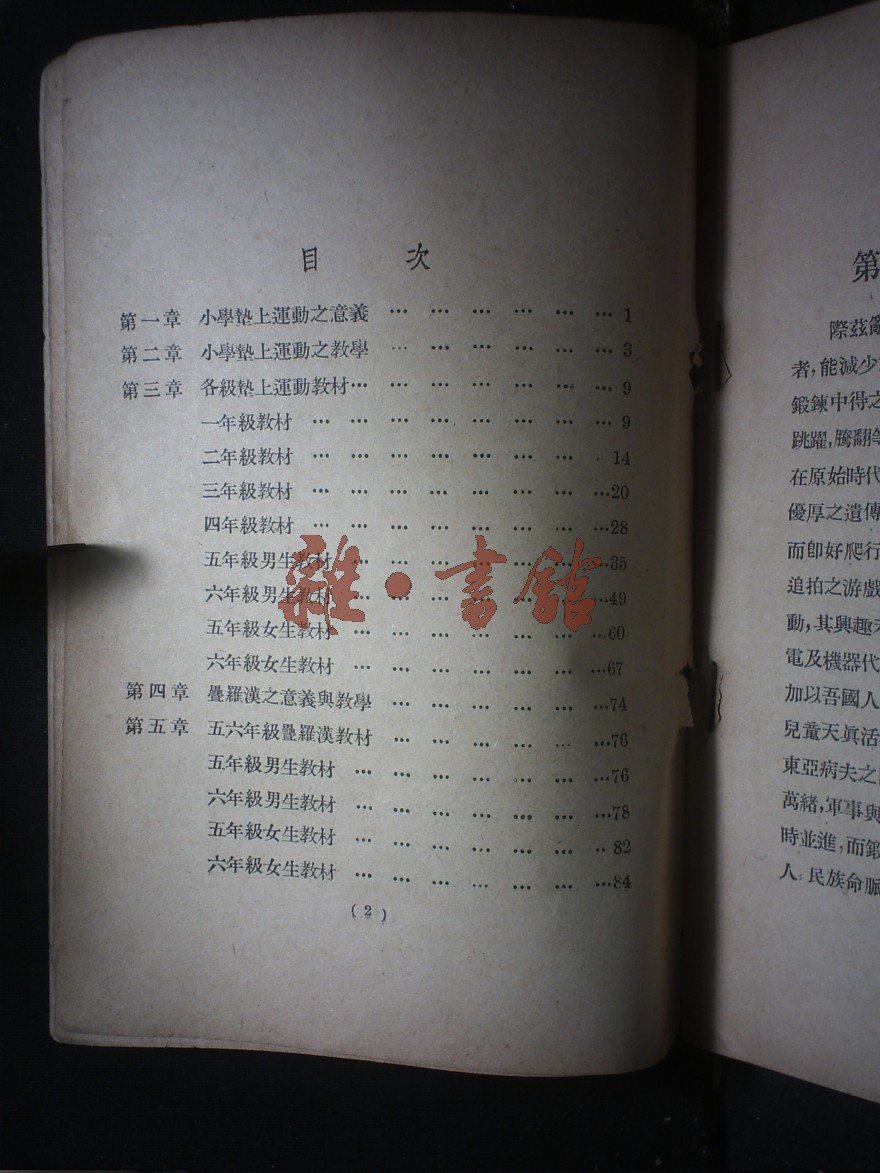 目 次
第一章 小學墊上運動之意義 … … … … … … 1
第二章 小學墊上運動之教學 … … … … … … 3
第三章 各級墊上運動教材… … … … … … … 9
一年級教材 … … … … … … … … 9
二年級教材 … … … … … … … … 14
三年級教材 … … … … … … … …20
四年級教材 … … … … … … … …28
五年級男生教材 … … … … … … …35
六年級男生教材 … … … … … … …49
五年級女生教材 … … … … … … …60
六年級女生教材 … … … … … … …67
第四章 疊羅漢之意義與教學 … … … … … …74
第五章 五六年級疊羅漢教材 … … … … … …76
五年級男生教材 … … … … … … …76
六年級男生教材 … … … … … … …78
五年級女生教材 … … … … … … … 82
六年級女生教材 … … … … … … …84
(2)
雜·書館
第
際茲
者,能減少
鍛鍊中得之
跳躍,騰翻等
在原始時代
優厚之遺傳
而卽好爬行
追拍之游戲
動,其興趣
電及機器代
加以吾國人
兒童天眞活
東亞病夫之
萬緒,軍事與
時並進,而鍛
人,民族命脈